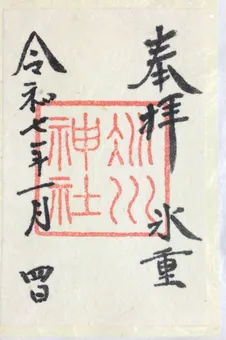 奉拝 氷重
氷川
神社
令和七年一月 四日